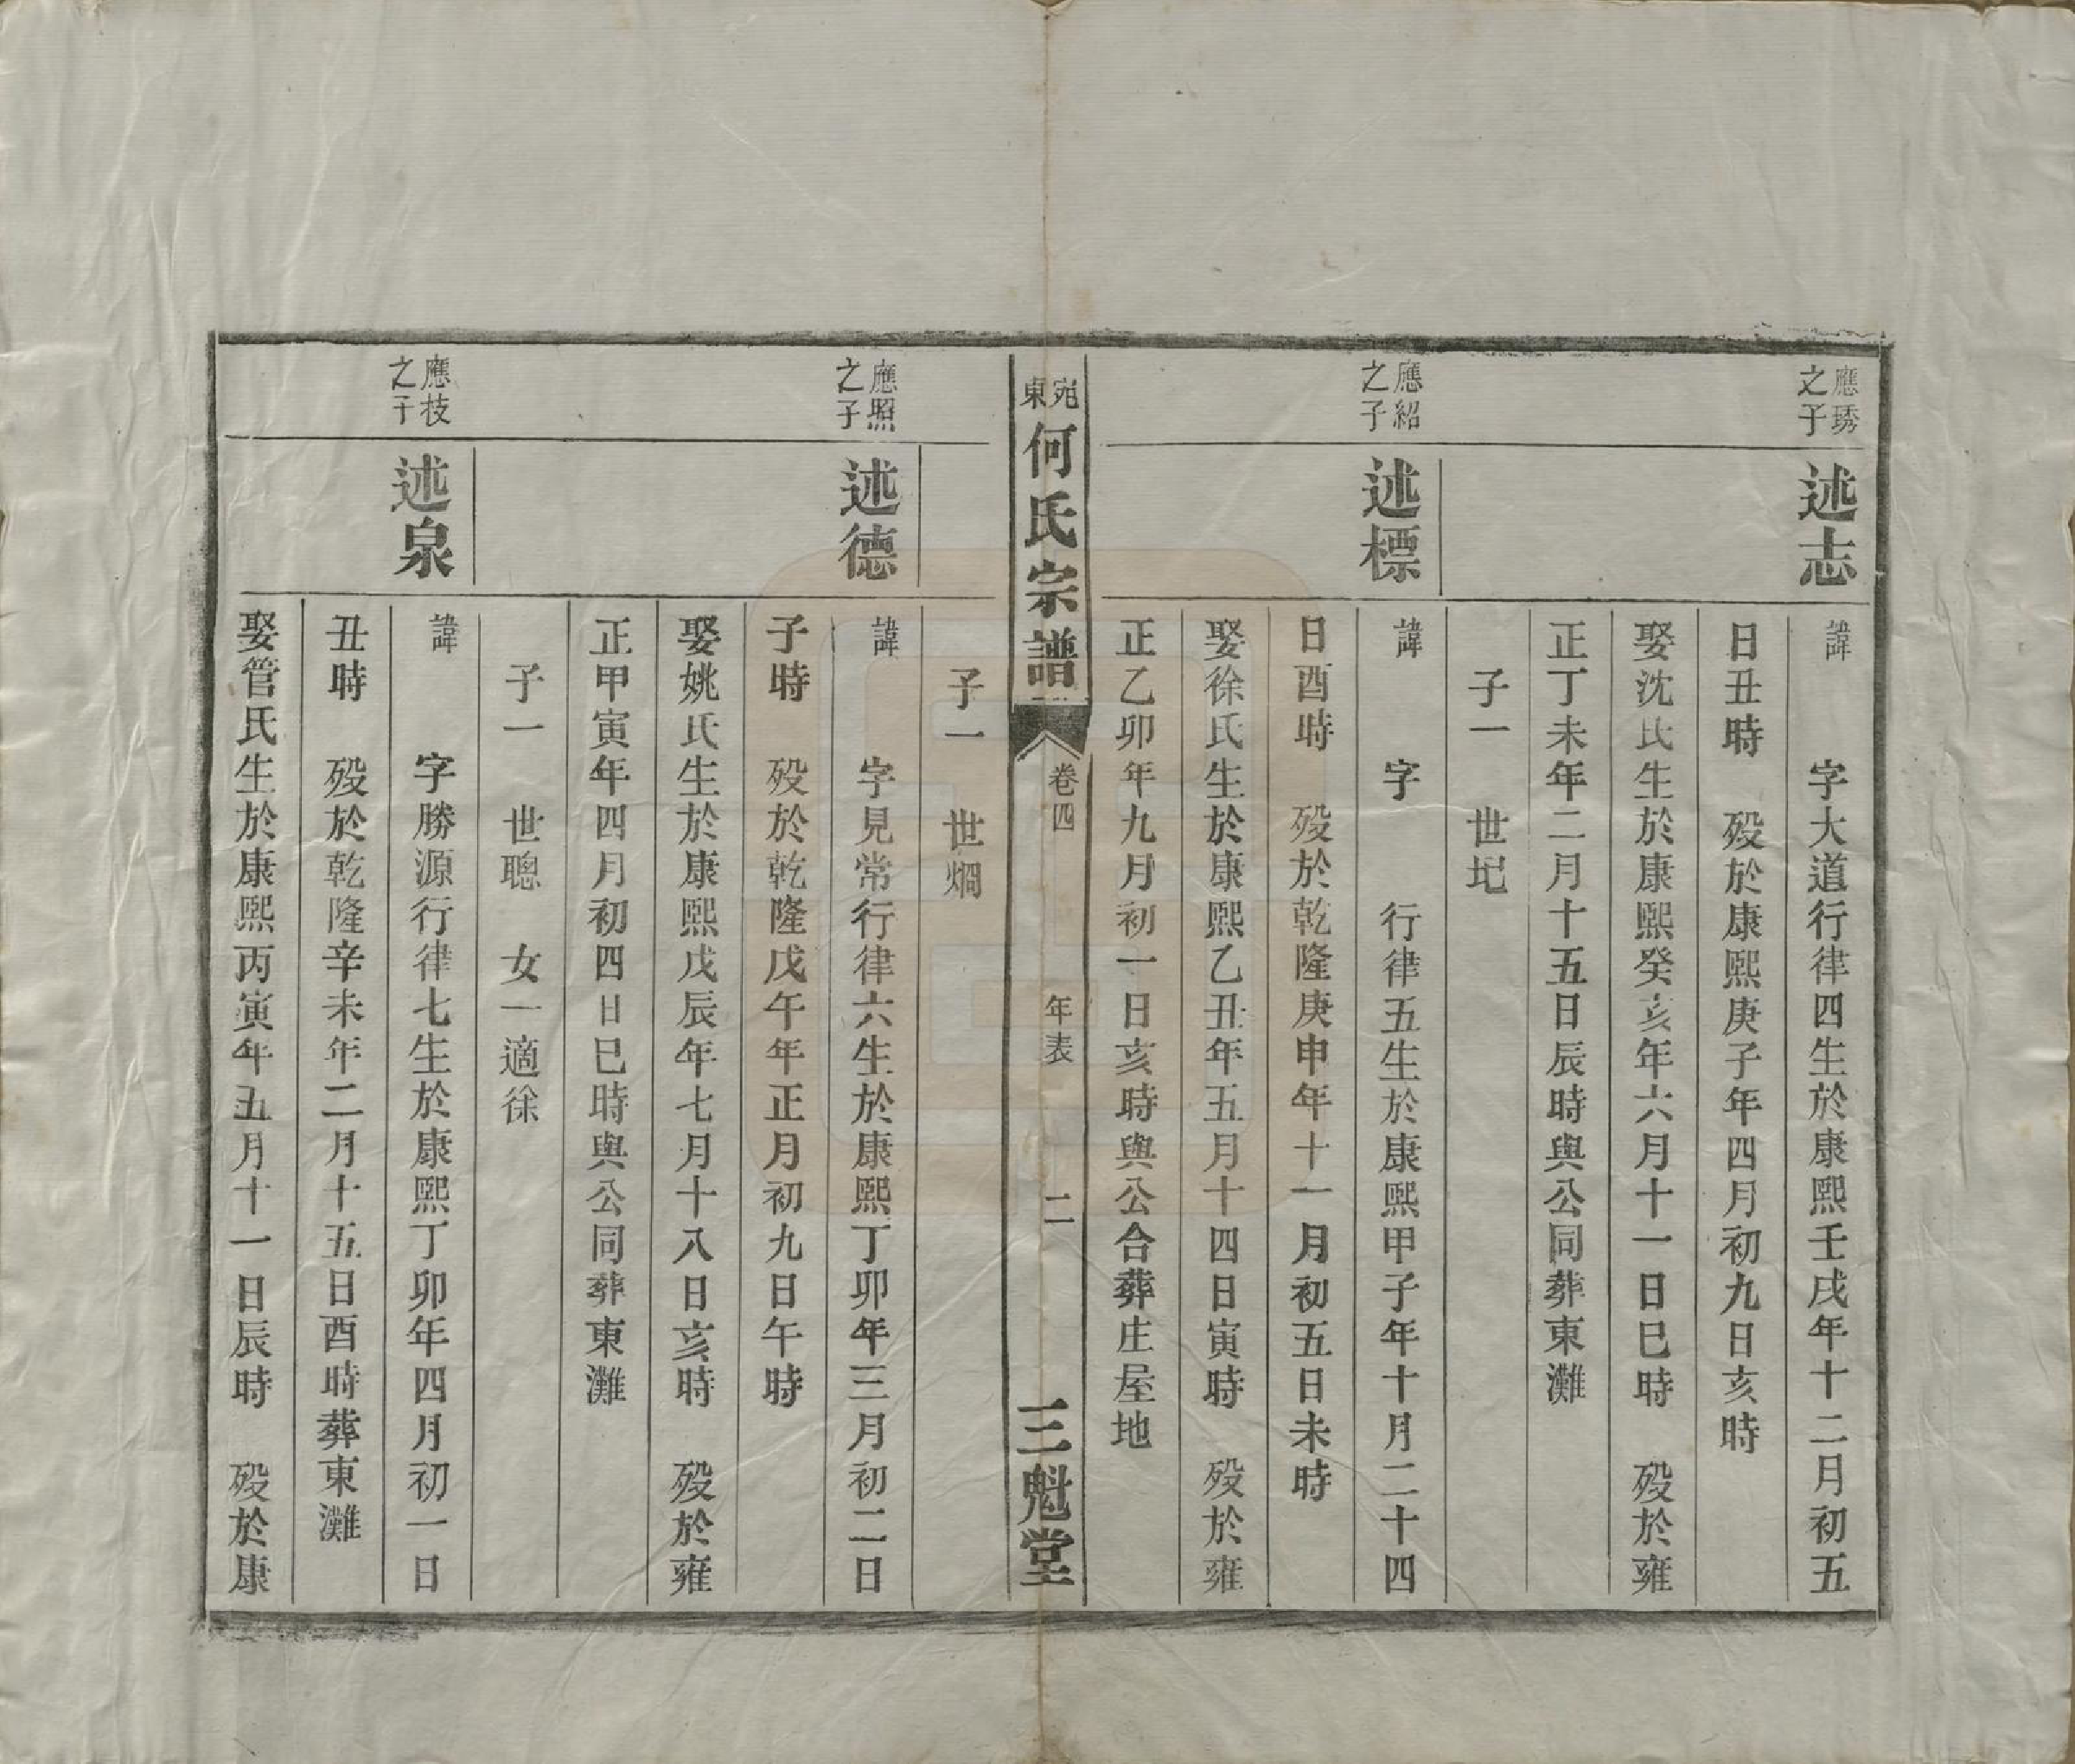 應琇
之子
述志
諱　　字大道行律四生於康熙壬戌年十二月初五
日丑時　殁於康熙庚子年四月初九日亥時
娶沈氏生於康熙癸亥年六月十一日巳時　殁於雍
正丁未年二月十五日辰時與公同葬東灘
子一　世圯
應紹
之子
述標
諱　　字　　行律五生於康熙甲子年十月二十四
日酉時　殁於乾隆庚申年十一月初五日未時
娶徐氏生於康熙乙丑年五月十四日寅時　殁於雍
正乙卯年九月初一日亥時與公合葬庄屋地
宛東
何氏宗譜
卷四
年表
二
三魁堂
子一　世燗
應照
之子
述德
諱　　字見常行律六生於康熙丁卯年三月初二日
子時　殁於乾隆戊午年正月初九日午時
娶姚氏生於康熙戊辰年七月十八日亥時　殁於雍
正甲寅年四月初四日巳時與公同葬東灘
子一　世聰　女一適徐
應枝
之子
述泉
諱　　字勝源行律七生於康熙丁卯年四月初一日
丑時　殁於乾隆辛未年二月十五日酉時葬東灘
娶管氏生於康熙丙寅年五月十一日辰時　殁於康